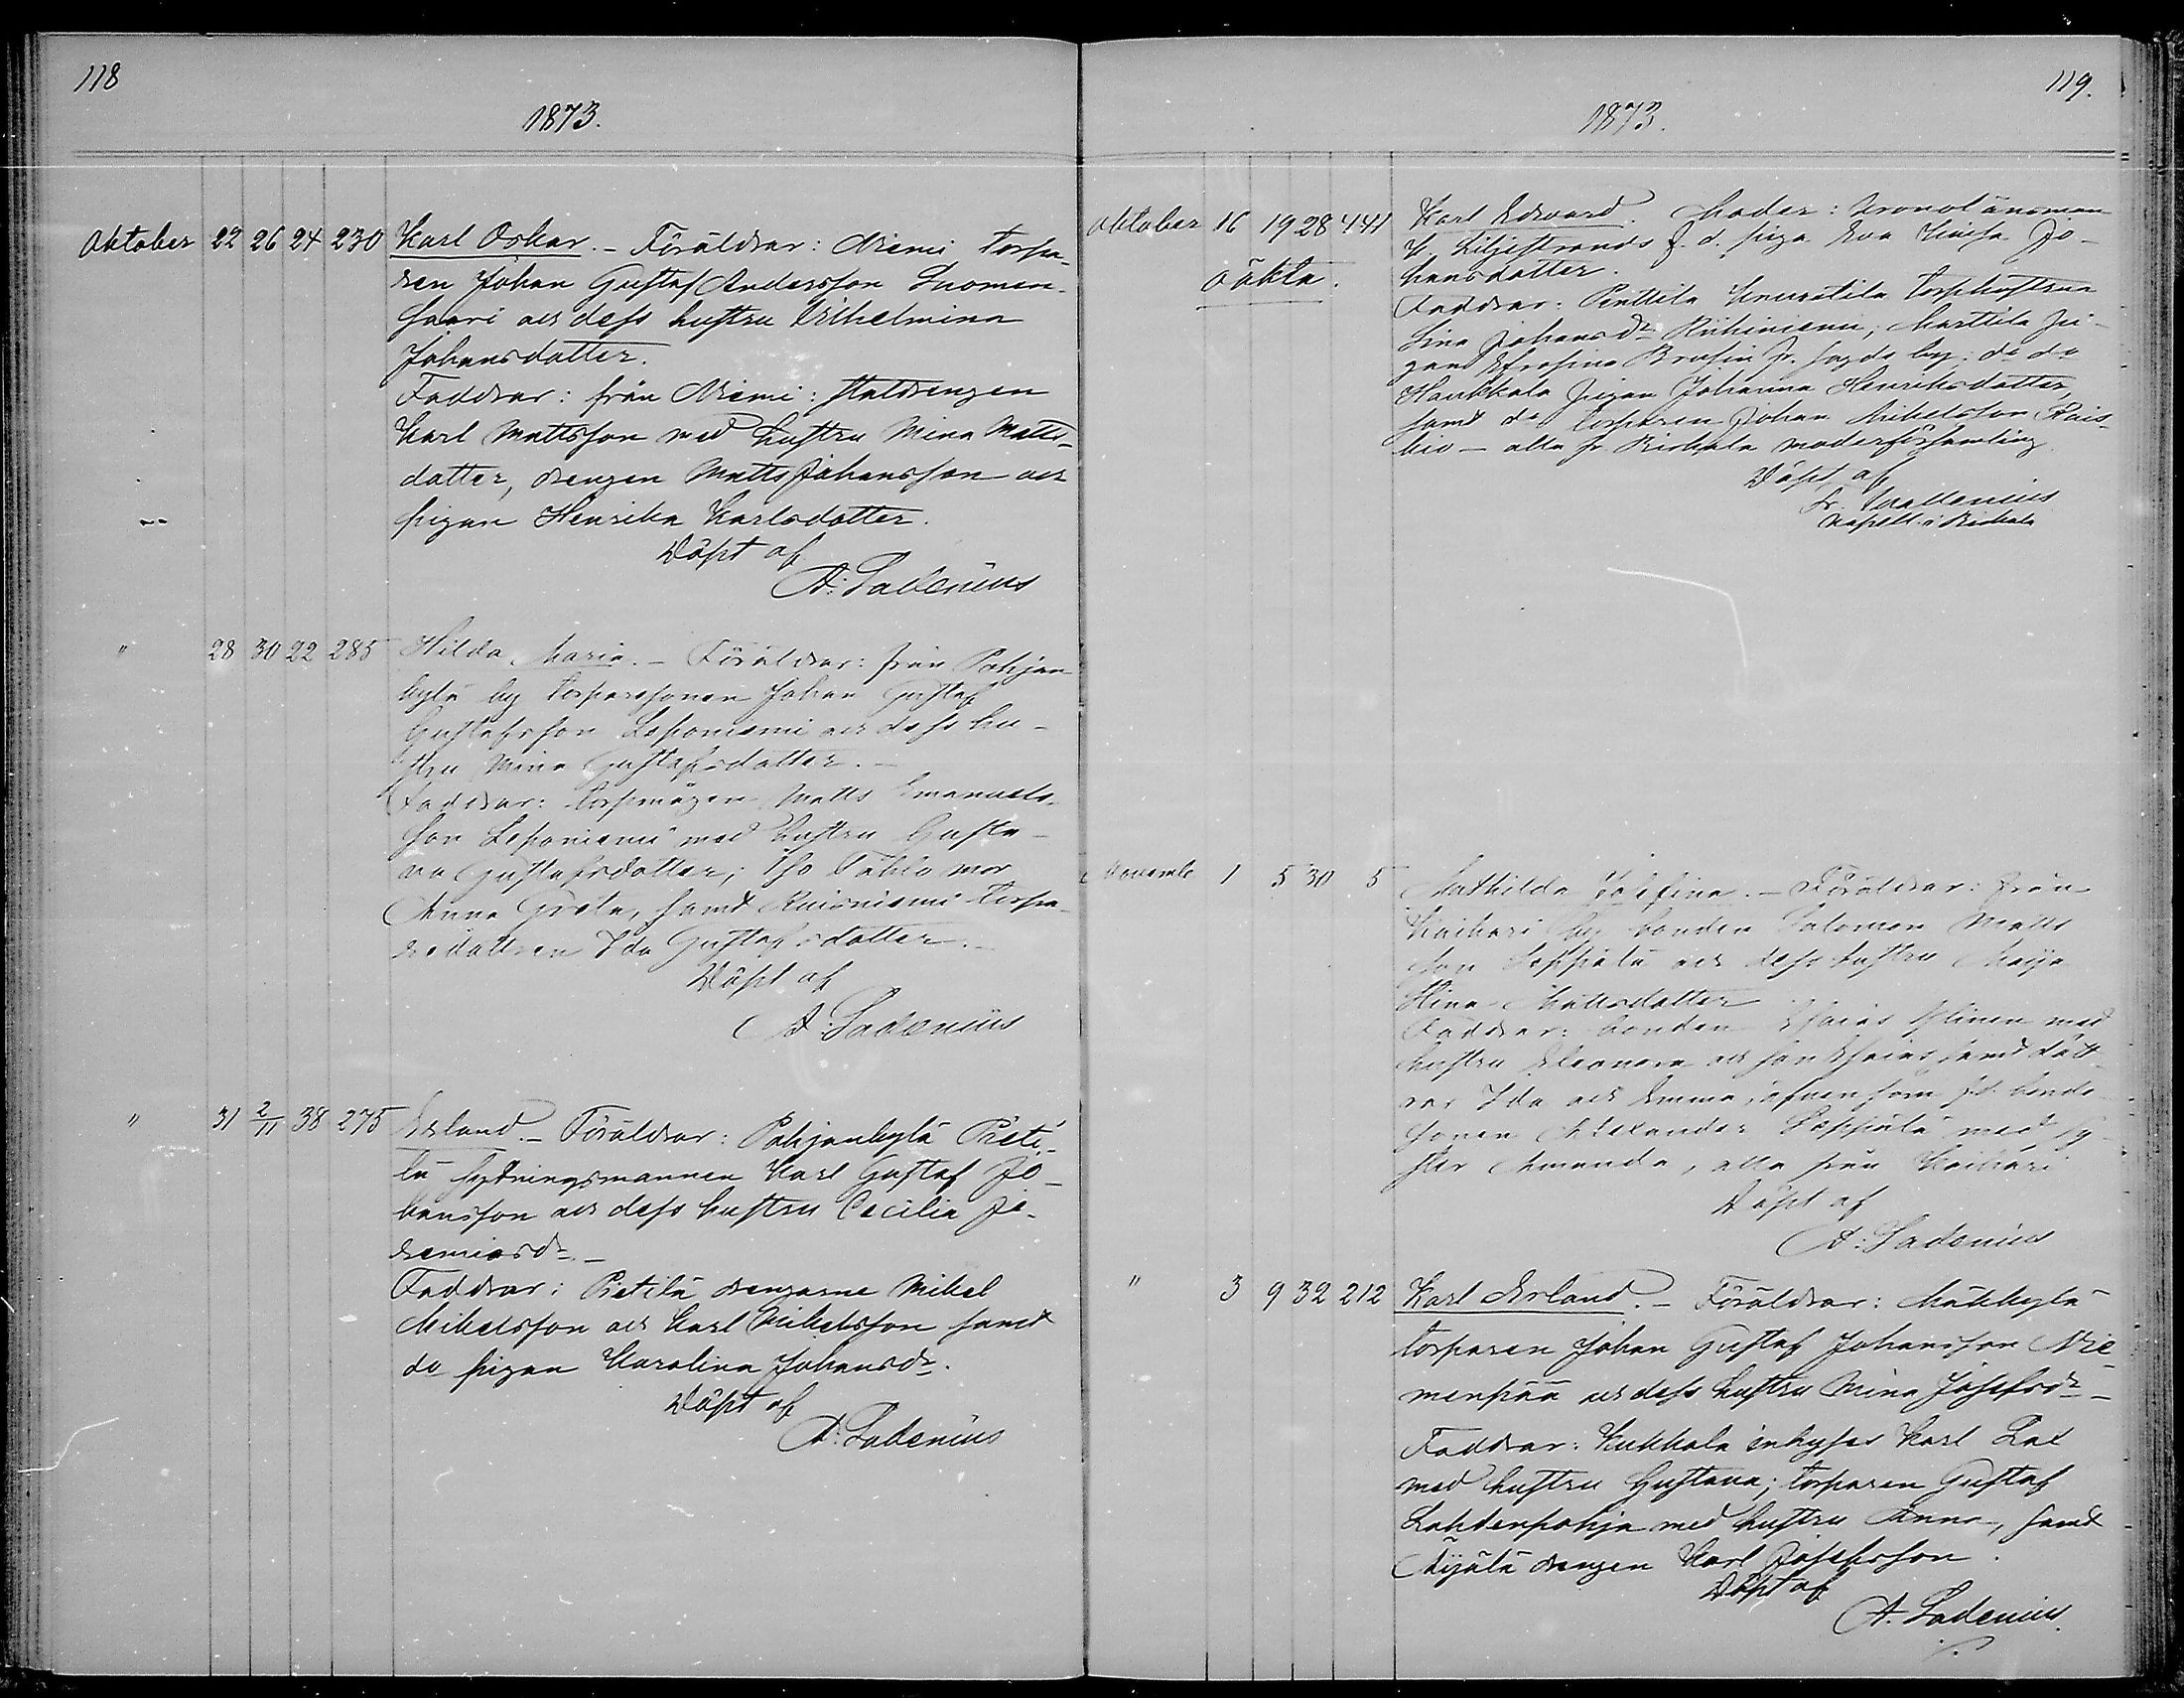 118
1873.
Oktober 22 26 24 230 Karl Oskar. - Föräldrar: Niemi torpa-
ren Johan Gustaf Andersson Suomen-
saari och dess hustru Wilhelmina
Johansdotter.
Faddrar: från Niemi: statdrengen
Karl Mattsson med hustru Mina Matts-
dotter, drengen Matts Johansson och
pigan Henrika Karlsdotter.
Döpt af
A: Ladenius
" 28 30 22 285 Hilda Maria. - Föräldrar: från Pohjan
kylä by torparesonen Johan Gustaf
Gustafsson Leponiemi och dess hu-
stru Mina Gustafsdotter. -
Faddrar: torpmågen Matts Emanuels-
son Leponiemi med hustru Gusta-
va Gustafsdotter; Iso Tahlo mor
Anna Greta, samt Ruisniemi torpa-
redottren Ida Gustafsdotter. -
Döpt af
A: Ladenius
" 31 2/11 38 275 Erland. - Föräldrar: Pohjankylä Pieti-
lä sytningsmannen Karl Gustaf Jo-
hansson och dess hustru Cecilia Je-
remiasdr. -
Faddrar: Pietilä drengarne Mikel
Mikelsson och Karl Mikelsson samt
do pigan Karolina Johansdr.
Döpt af
A: Ladenius
119.
1873.
Oktober 16 19 28 441 Karl Edvard. Moder: Kronolänsman
Liljestrands f. d. piga Eva Lovisa Jo-
oäkta.
hansdotter.
Faddrar: Penttilä torphustrun
Lina Johansdr Riihiniemi; Marttila pi-
gan Efrosina fr. sagde by; do do
Haukkala pigan Johanna Henriksdotter,
samt do torparen Johan Mikelsson
- alla fr. moderförsamling
Döpt af
Kapell. i
November 1 5 30 5 Mathilda Josefina. - Föräldrar: från
Kaihari by bonden Salomon Matts
son Seppälä och dess hustru Maja
Stina Mattsdotter
Faddrar: bonden Esaias med
hustru Eleonora och son Esaias samt dött-
rar Ida och Emma, äfvensom bonde
sonen Alexander Seppälä med sy-
ster Amanda, alla från Kaihari
Döpt af
A: Ladenius
" 3 9 32 212 Karl Erland. - Föräldrar: Mäkkylä
torparen Johan Gustaf Johansson Nie-
menpää och dess hustru Mina Josefsdr -
Faddrar: Kukkola inhyses Karl Lax
med hustru Gustava; torparen Gustaf
Lahdenpohja med hustru Anna, samt
Äijälä drengen Karl Josefsson.
Döpt af
A. Ladenius.